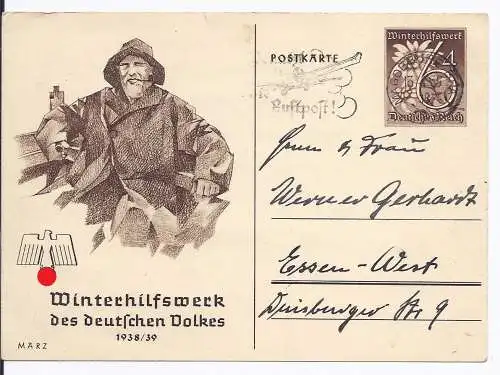 Winterhilfswerk
des deutschen Volkes
1938/39
MÄRZ
POSTKARTE
Luftpost!
Winterhilfswerk
4
Deutsches Reich
Herrn & Frau
Werner Gerhardt
Essen-West
Duisburger Str 9